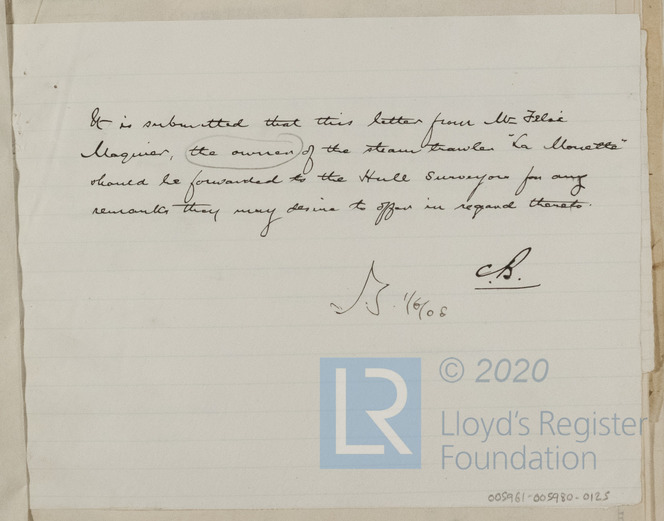 It is submitted that this letter from Mr Felix
Maquier, the owner of the steam trawler "La Mouette"
should be forwarded to the Hull Surveyors for any
remarks they may desire to offer in regard thereto.
C.B.
1/6/06
LR
© 2020
Lloyd's Register
Foundation
005961-005980-0125